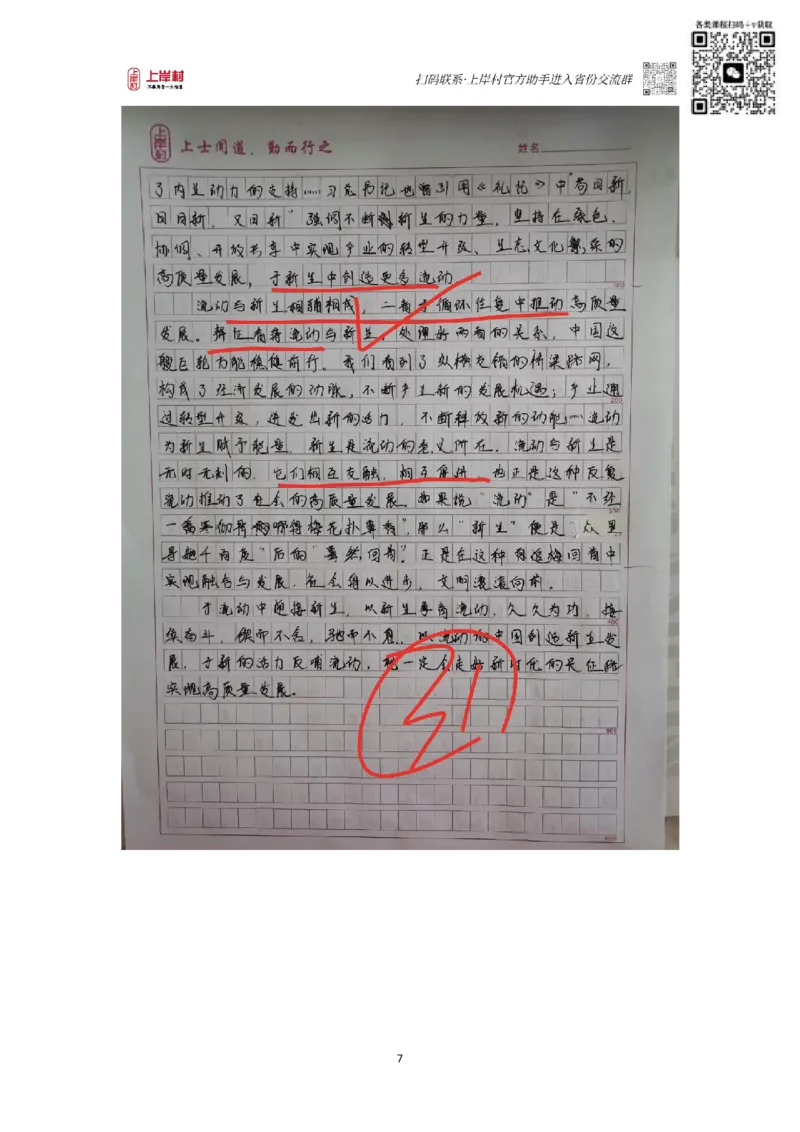 各类课程扫码+v获取
上岸村
扫码联系·上岸村官方助手进入省份交流群
上岸村
上士闻道，勤而行之
姓名
了内生动力的支持……习总书记也引用《礼记》中"苟日新
日日新，又日新"强调不断新生的力量，坚持在底色、
协调、开放共享中实现产业的转型升级、生态文化繁荣的
高质量发展，于新生中创造更多流动
流动与新生相辅相成，二者于循环往复中推动高质量
发展。辩证看待流动与新生，处理好两者的关系，中国这
艘巨轮方能稳健前行。我们看到了纵横交错的桥梁路网，
构成了经济发展的动脉，不断产生新的发展机遇；产业通
过转型升级，迸发出新的活力，不断释放新的动能……流动
为新生赋予能量，新生是流动的意义所在，流动与新生是
无时无刻的，它们相互交融，相了促进，也正是这种反复
流动推动了社会的高质量发展。如果说"流动"是"不经
一番寒彻骨哪得梅花扑鼻香"，那么"新生"便是"众里
寻她千百度"后的"蓦然回首"正是在这种回首中
实现融合与发展，社会得以进步，文明滚滚向前。
于流动中迎接新生，以新生孕育流动，久久为功，接
续奋斗，锲而不舍，驰而不息，以流动的中国创造新生发
展，于新的活力反哺流动，就一定会走好新时代的长征路
实现高质量发展。
31
7